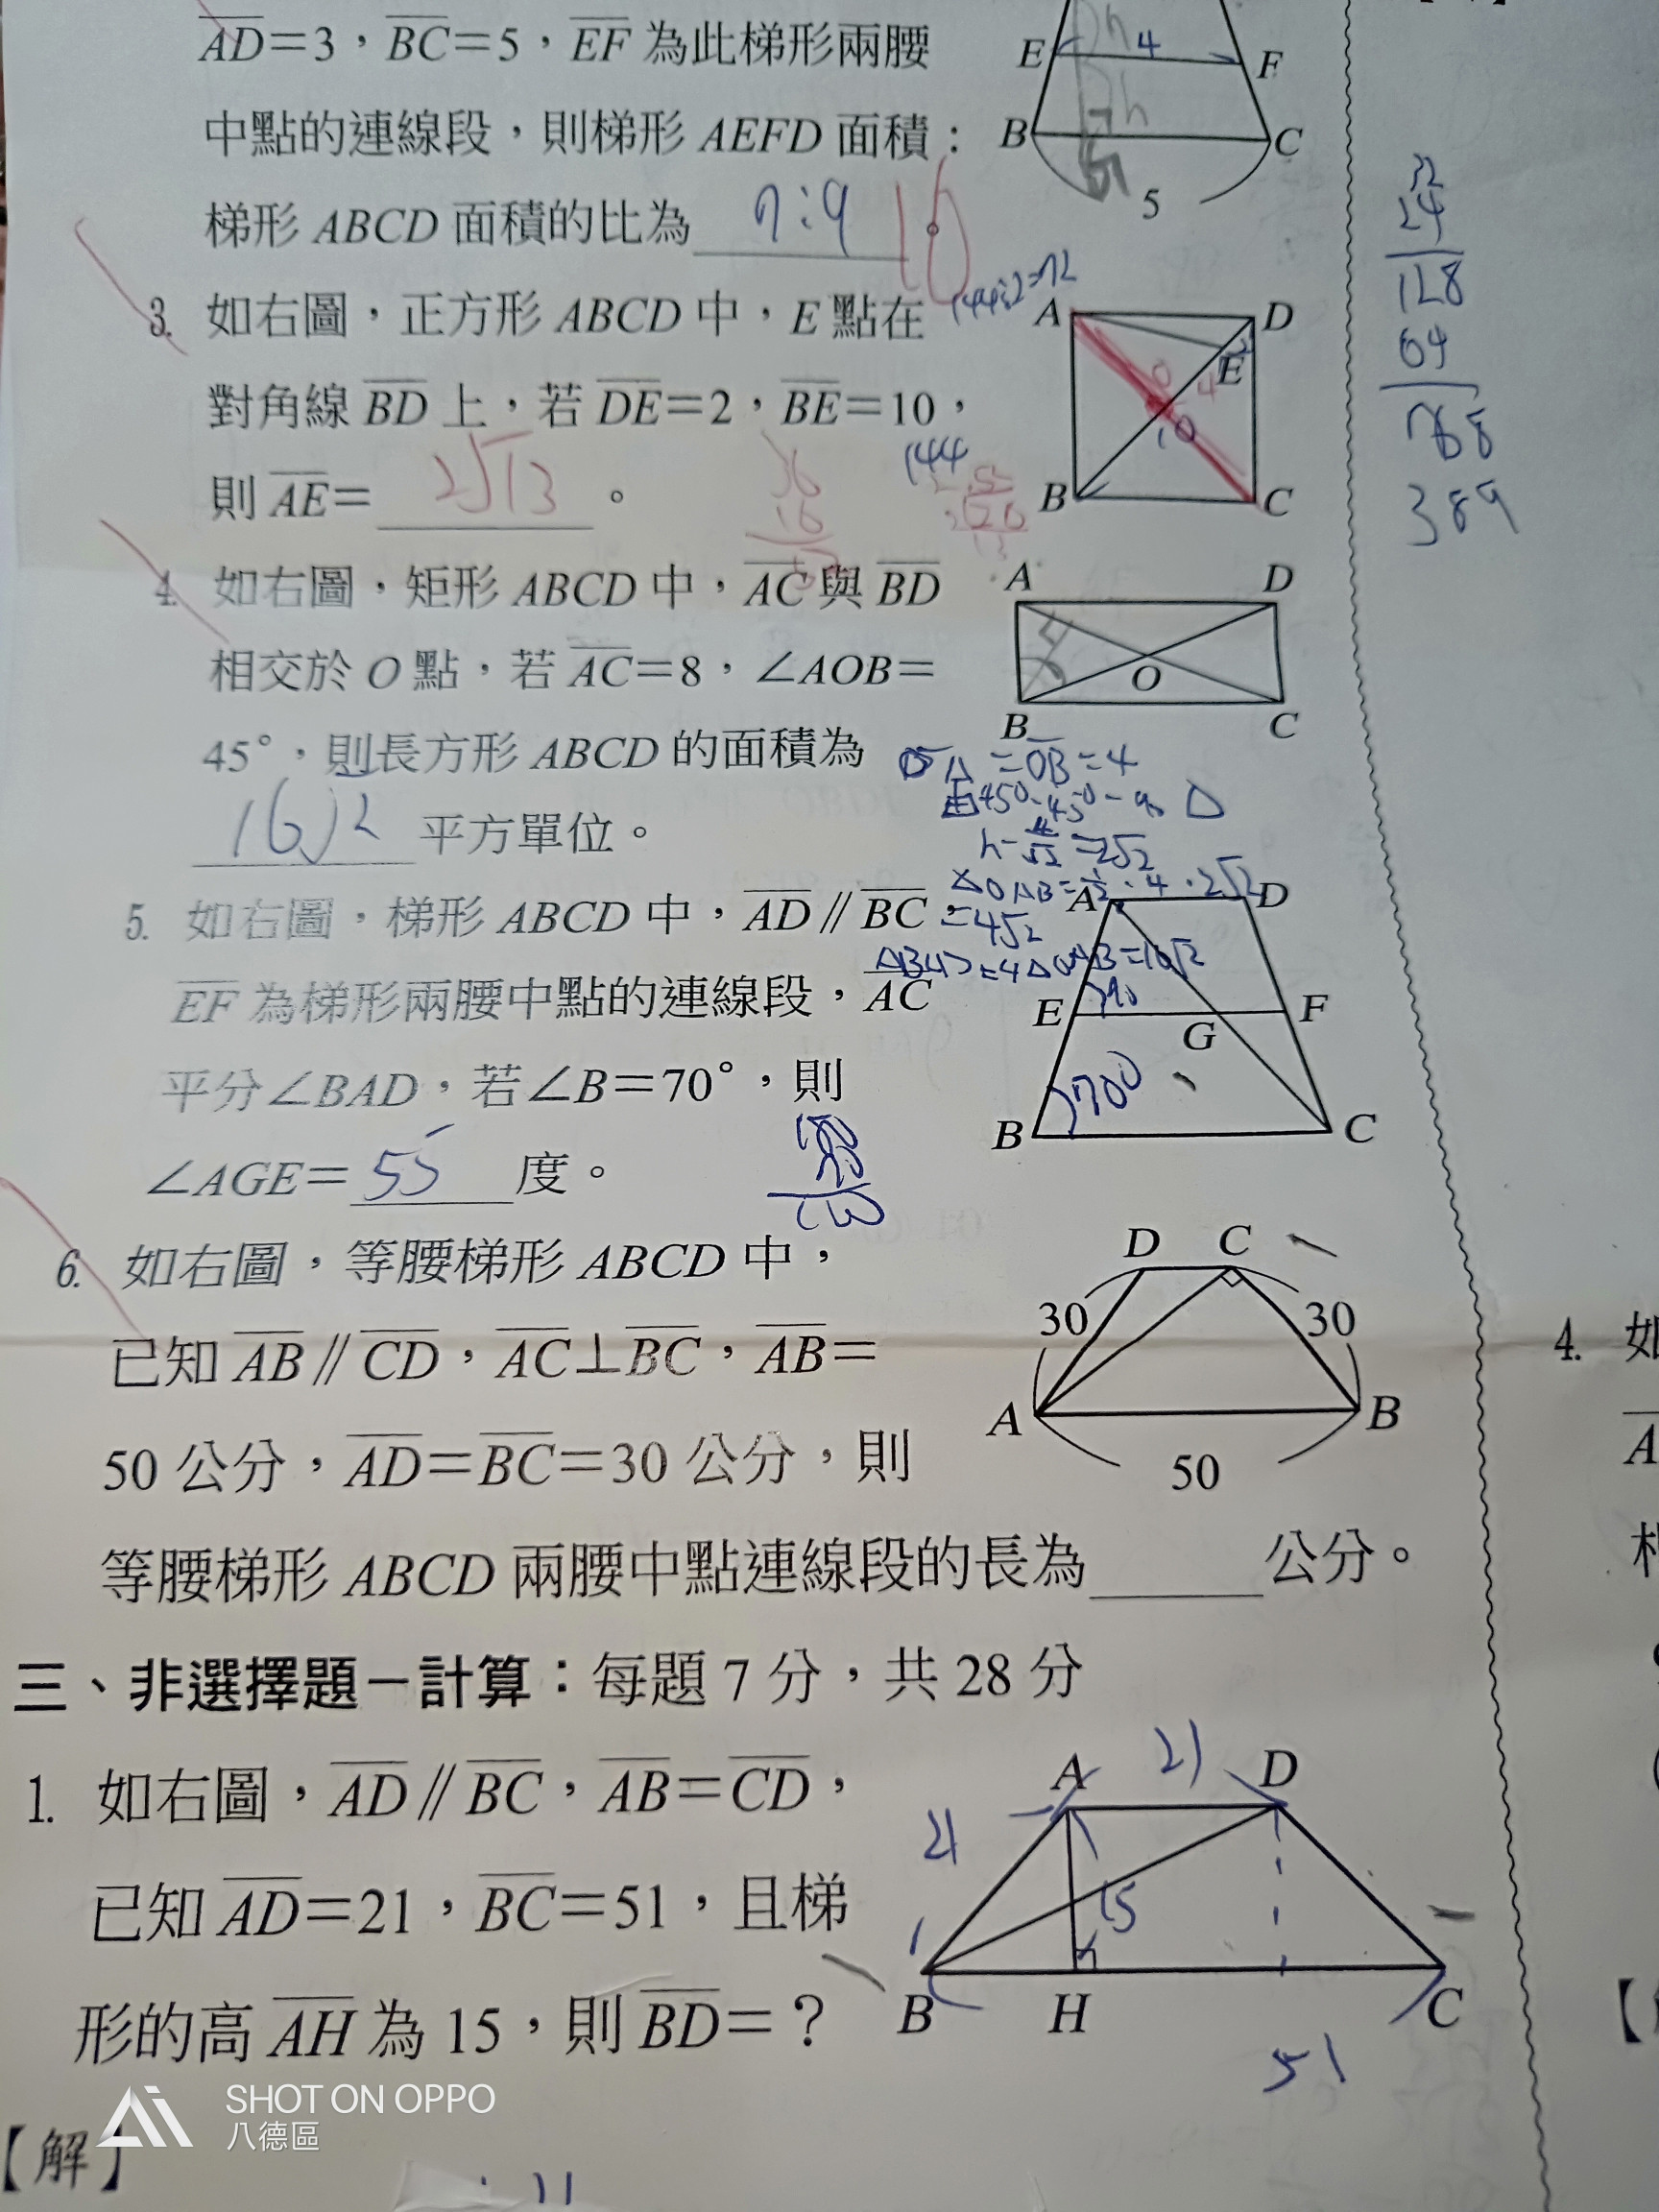 AD=3，BC=5，EF 為此梯形兩腰
中點的連線段，則梯形 AEFD 面積：
梯形 ABCD 面積的比為 7:9 16 。
E 4 F
B C
5
3. 如右圖，正方形 ABCD 中，E 點在
對角線 BD 上，若 DE=2，BE=10，
則 AE= 2√13 。
144÷2=72
A D
E
O 4
10
B C
144
36
16
32
24
128
64
768
389
4. 如右圖，矩形 ABCD 中，AC 與 BD
相交於 O 點，若 AC=8，∠AOB=
45°，則長方形 ABCD 的面積為
16√2 平方單位。
A D
O
B C
OA=OB=4
=2√2
=4√2
5. 如右圖，梯形 ABCD 中，AD // BC，
EF 為梯形兩腰中點的連線段，AC
平分∠BAD，若∠B=70°，則
∠AGE= 55 度。
A D
E G F
70°
B C
6. 如右圖，等腰梯形 ABCD 中，
已知 AB // CD，AC⊥BC，AB=
50 公分，AD=BC=30 公分，則
等腰梯形 ABCD 兩腰中點連線段的長為 公分。
D C
30 30
A B
50
三、非選擇題－計算：每題 7 分，共 28 分
1. 如右圖，AD // BC，AB=CD，
已知 AD=21，BC=51，且梯
形的高 AH 為 15，則 BD=？
21
A D
21
15
B H C
51
【解】
4. 如
SHOT ON OPPO
八德區